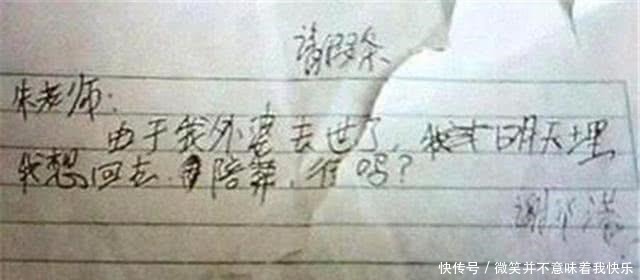 请假条
朱老师:
由于我外婆去世了,我 明天埋
我想回去 陪葬,行吗?
谢
快传号/微笑并不意味着我快乐